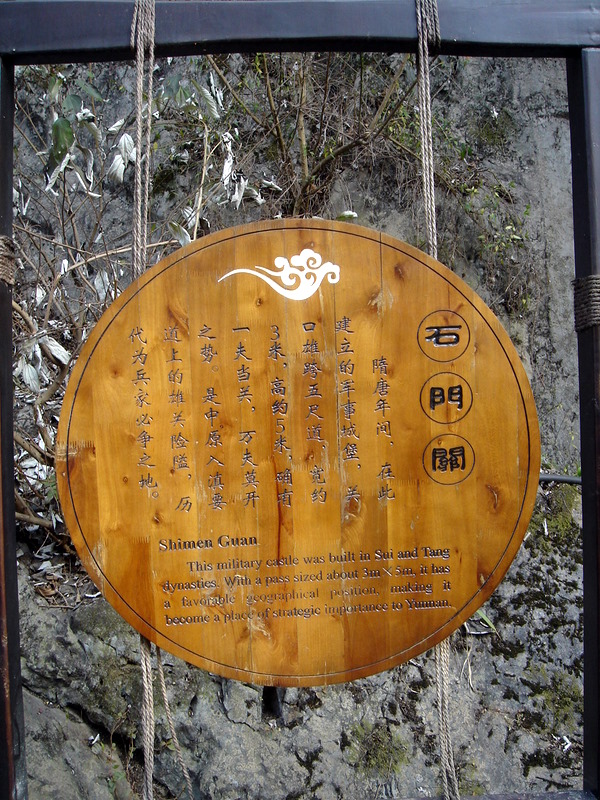 石門關
隋唐年间，在此
建立的军事城堡，关
口雄跨五尺道，宽约
3米，高约5米，确有
一夫当关，万夫莫开
之势。是中原入滇要
道上的雄关险隘，历
代为兵家必争之地。
Shimen Guan
This military castle was built in Sui and Tang
dynasties. With a pass sized about 3m×5m, it has
a favorable geographical position, making it
become a place of strategic importance to Yunnan.